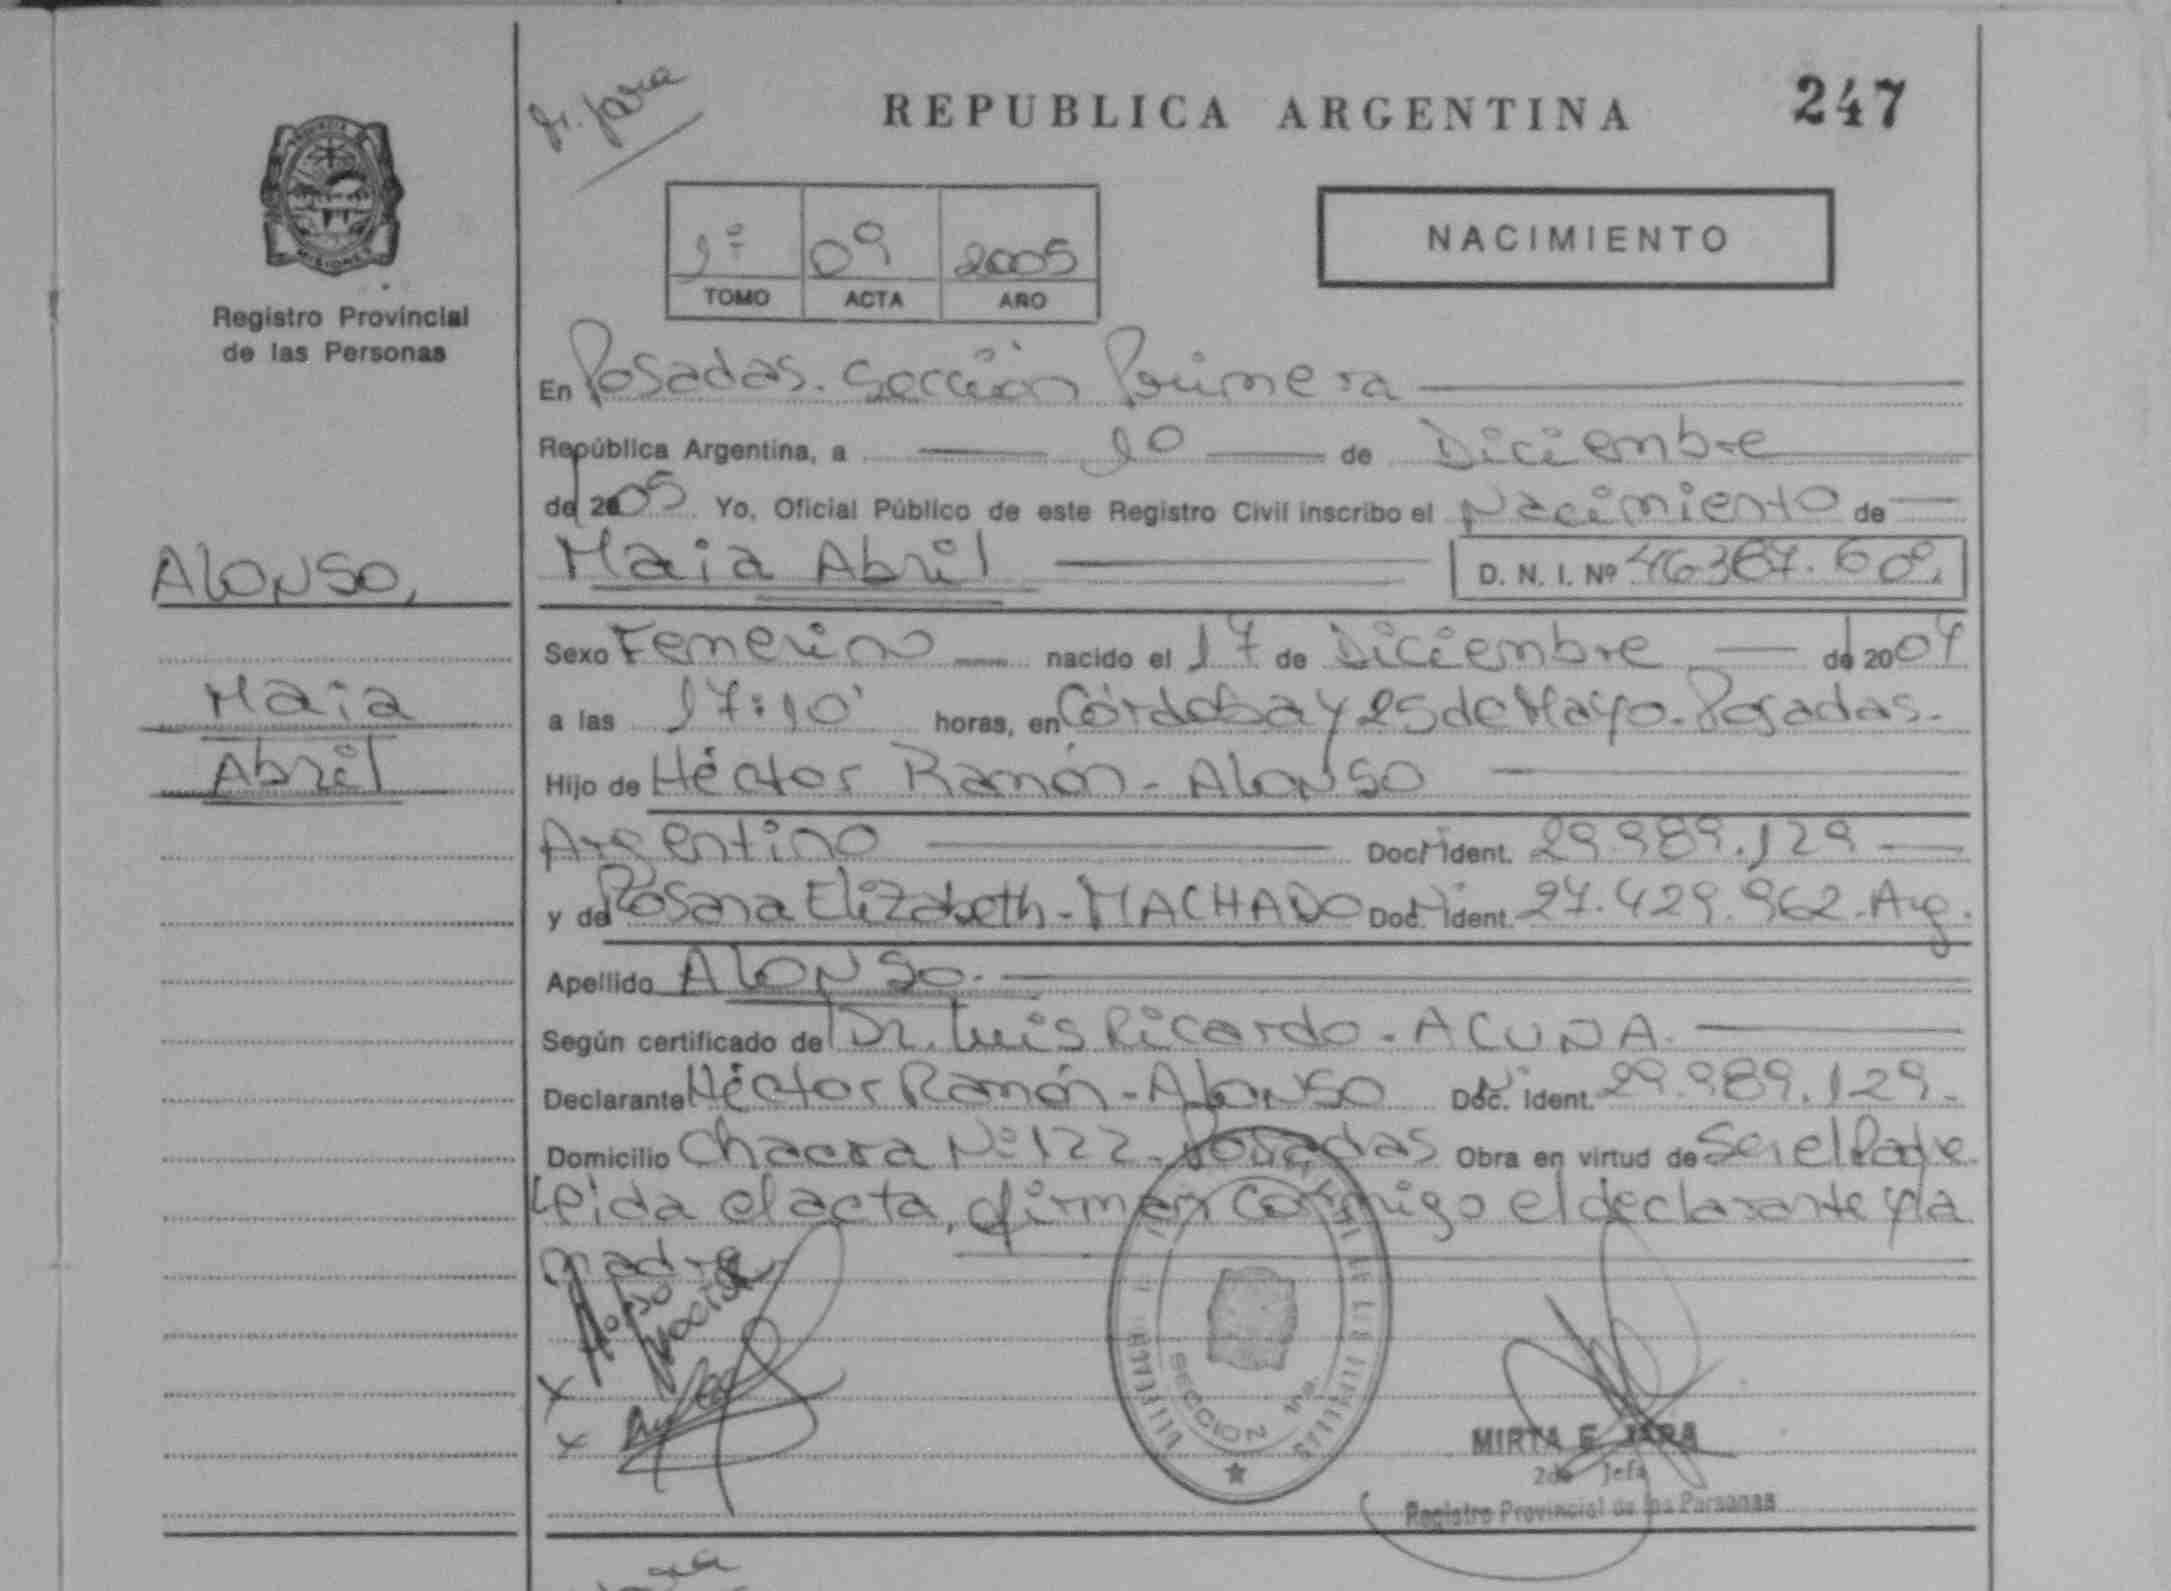 Dr. Jara
REPUBLICA ARGENTINA
247
1º 09 2005
TOMO ACTA AÑO
NACIMIENTO
Registro Provincial
de las Personas
En Posadas. Sección Primera
República Argentina, a 10 de Diciembre
de 2005 Yo, Oficial Público de este Registro Civil inscribo el Nacimiento de
Maia Abril D. N. I. Nº 46.367.60
ALONSO,
Maia
Abril
Sexo Femenino nacido el 17 de Diciembre de 2004
a las 17:10' horas, en Córdoba y 25 de Mayo. Posadas.
Hijo de Héctor Ramón - ALONSO
Argentino Doc. ident. 29.989.129
y de Rosana Elizabeth - MACHADO Doc. ident. 27.429.962. Arg.
Apellido ALONSO.
Según certificado de Dr. Luis Ricardo - ACUÑA.
Declarante Héctor Ramón - ALONSO Doc. ident. 29.989.129.
Domicilio Chacra Nº 122 - Posadas Obra en virtud de Ser el Padre.
Leída el acta, firman conmigo el declarante y la
madre
SECCION 1ra.
MIRTA E. JARA
2da Jefa
Registro Provincial de las Personas